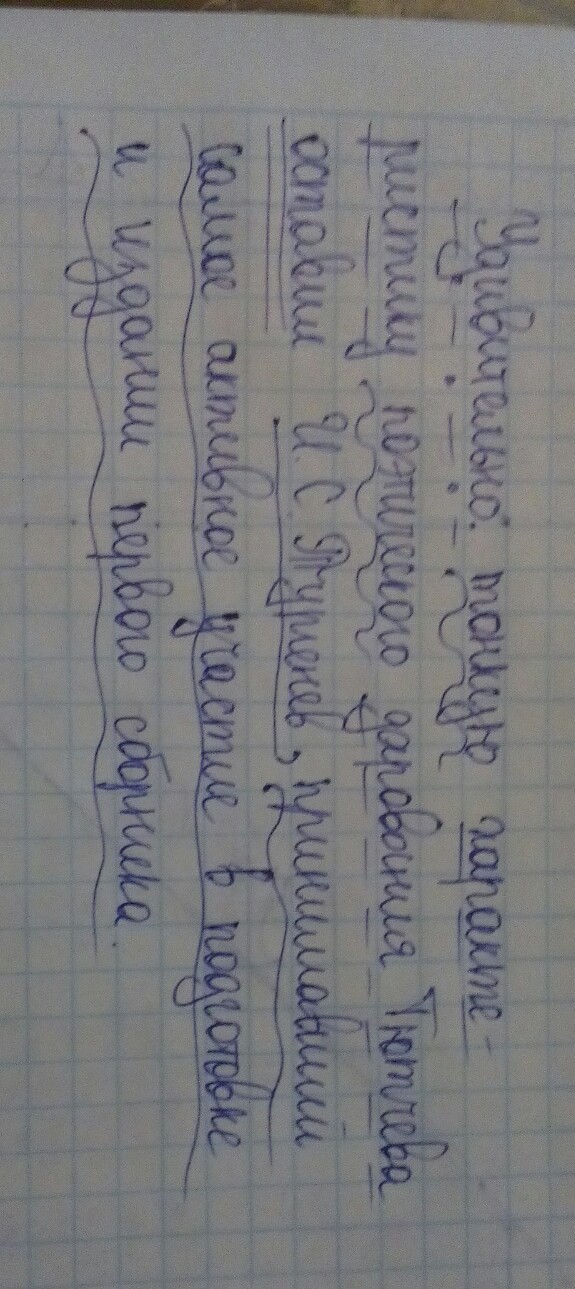 Удивительно тонкую характе-
ристику поэтического дарования Тютчева
оставил И. С. Тургенев, принимавший
самое активное участие в подготовке
и издании первого сборника.